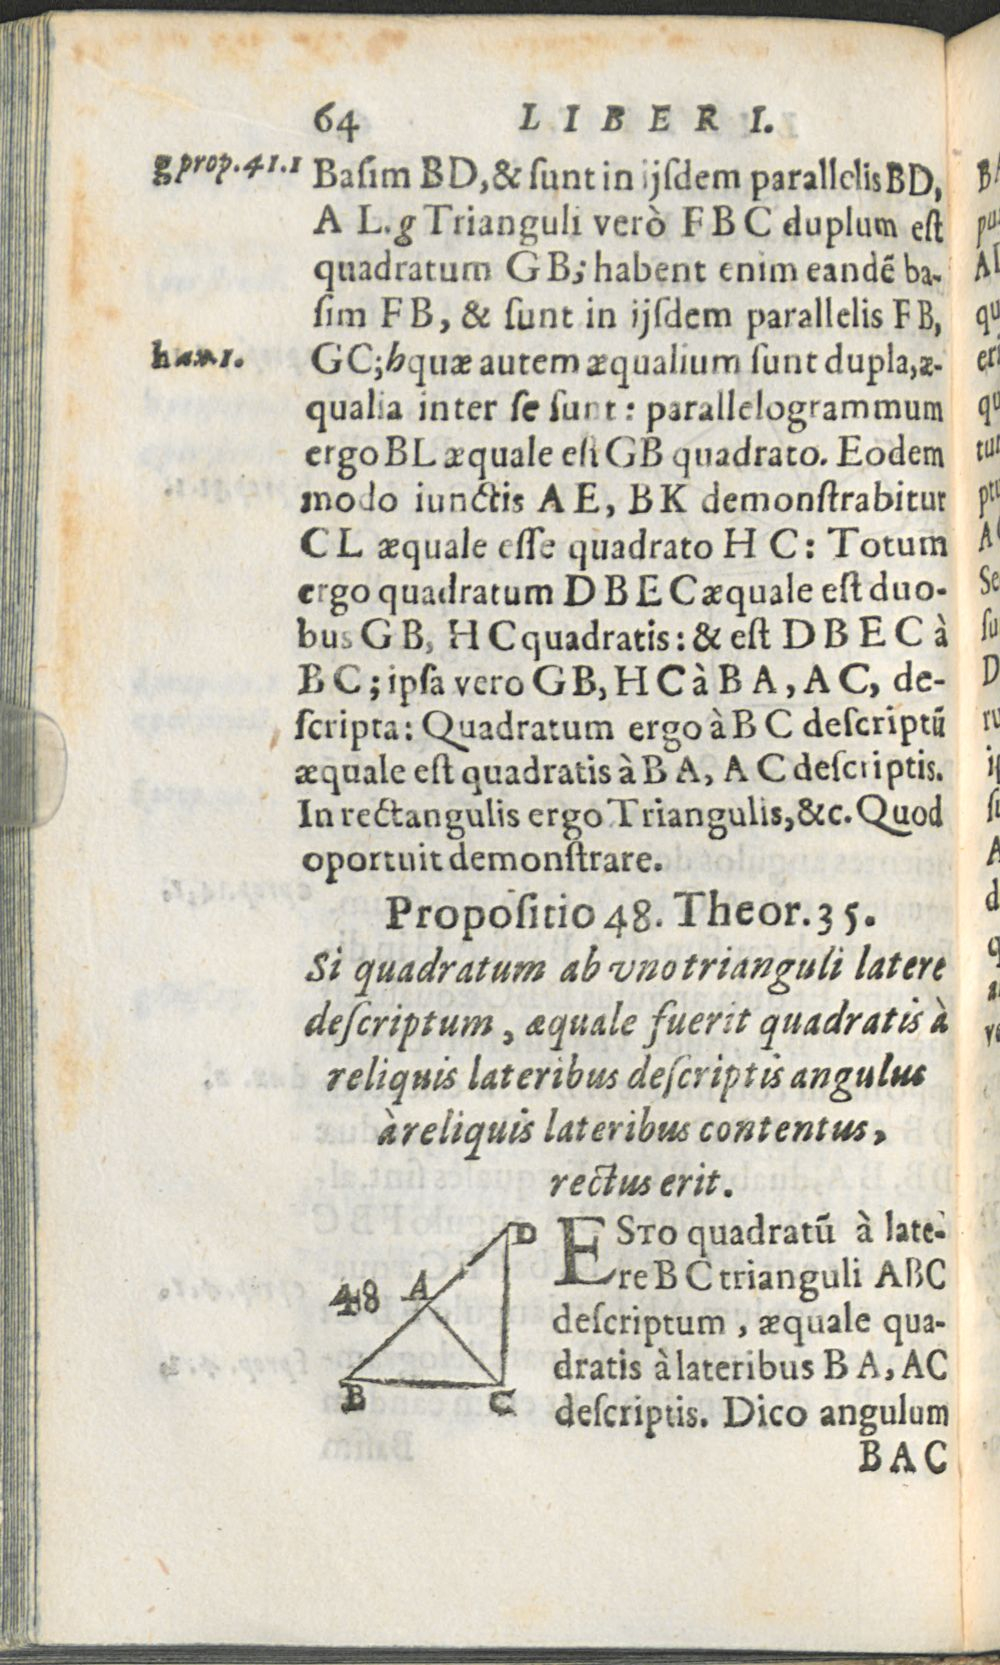 64 LIBER I.
g prop.41.1 Baſim BD,& ſunt in ijſdem parallelis BD,
A L. g Trianguli verò F B C duplum eſt
quadratum G B; habent enim eandē ba-
ſim F B, & ſunt in ijſdem parallelis F B,
h ax.1. GC; h quæ autem æqualium ſunt dupla,æ-
qualia inter ſe ſunt: parallelogrammum
ergo BL æquale eſt GB quadrato. Eodem
modo iunctis A E, B K demonſtrabitur
C L æquale eſſe quadrato H C: Totum
ergo quadratum D B E C æquale eſt duo-
bus G B, H C quadratis: & eſt D B E C à
B C; ipſa vero G B, H C à B A, A C, de-
ſcripta: Quadratum ergo à B C deſcriptū
æquale eſt quadratis à B A, A C deſcriptis.
In rectangulis ergo Triangulis,&c. Quod
oportuit demonſtrare.
Propoſitio 48. Theor. 35.
Si quadratum ab vno trianguli latere
deſcriptum, æquale fuerit quadratis à
reliquis lateribus deſcriptis angulus
à reliquis lateribus contentus,
rectus erit.
ESTO quadratū à late-
re B C trianguli ABC
deſcriptum, æquale qua-
dratis à lateribus B A, AC
deſcriptis. Dico angulum
BAC
D
48 A
B C